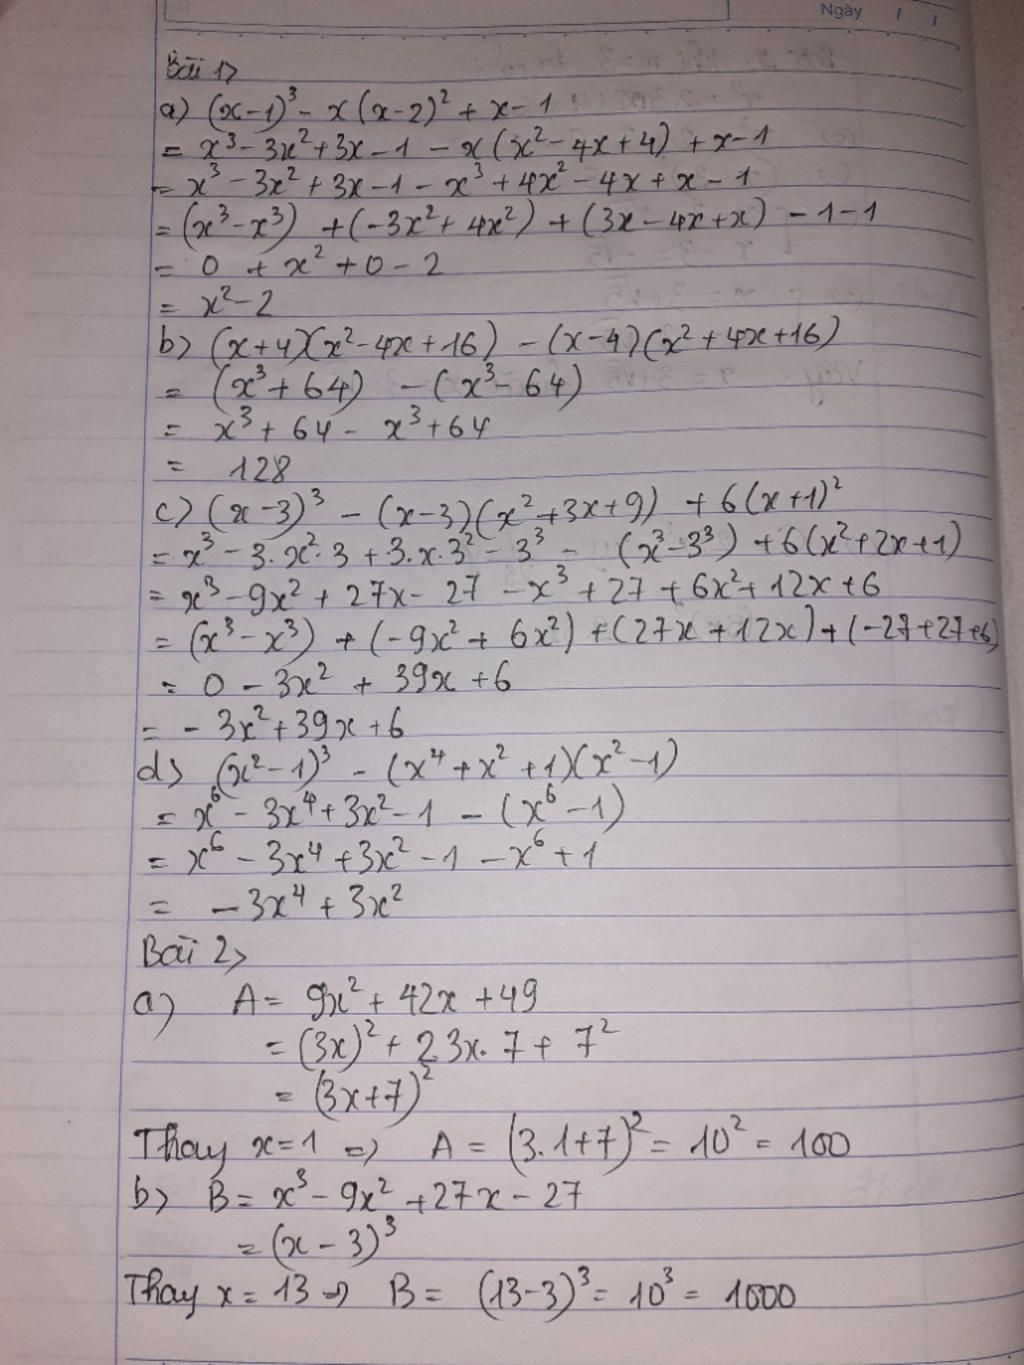 Ngày / /
Bài 1>
a) (x-1)³ - x(x-2)² + x - 1
= x³ - 3x² + 3x - 1 - x(x² - 4x + 4) + x - 1
= x³ - 3x² + 3x - 1 - x³ + 4x² - 4x + x - 1
= (x³ - x³) + (-3x² + 4x²) + (3x - 4x + x) - 1 - 1
= 0 + x² + 0 - 2
= x² - 2
b) (x+4)(x² - 4x + 16) - (x-4)(x² + 4x + 16)
= (x³ + 64) - (x³ - 64)
= x³ + 64 - x³ + 64
= 128
c) (x-3)³ - (x-3)(x² + 3x + 9) + 6(x+1)²
= x³ - 3.x².3 + 3.x.3² - 3³ - (x³ - 3³) + 6(x² + 2x + 1)
= x³ - 9x² + 27x - 27 - x³ + 27 + 6x² + 12x + 6
= (x³ - x³) + (-9x² + 6x²) + (27x + 12x) + (-27 + 27 + 6)
= 0 - 3x² + 39x + 6
= - 3x² + 39x + 6
d) (x² - 1)³ - (x⁴ + x² + 1)(x² - 1)
= x⁶ - 3x⁴ + 3x² - 1 - (x⁶ - 1)
= x⁶ - 3x⁴ + 3x² - 1 - x⁶ + 1
= - 3x⁴ + 3x²
Bài 2>
a) A = 9x² + 42x + 49
= (3x)² + 2.3x.7 + 7²
= (3x + 7)²
Thay x = 1 => A = (3.1 + 7)² = 10² = 100
b) B = x³ - 9x² + 27x - 27
= (x - 3)³
Thay x = 13 => B = (13 - 3)³ = 10³ = 1000